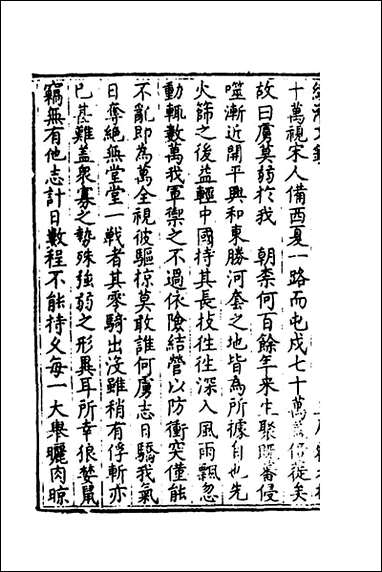 十萬視宋人備西夏一路而屯戍七十萬倍蓰矣
故曰虜莫弱於我　朝柰何百餘年来生聚既蕃侵
噬漸近開平興和東勝河套之地皆為所據自也先
火篩之後益輕中國持其長技徃徃深入風雨飄忽
動輒數萬我軍禦之不過依險結營以防衝突僅能
不亂即為萬全視彼驅掠莫敢誰何虜志日驕我氣
日奪絕無堂堂一戰者其零騎出沒雖稍有俘斬亦
已甚難蓋衆寡之勢殊強弱之形異耳所幸狼婪鼠
竊無有他志計日數程不能持久每一大舉曬肉晾